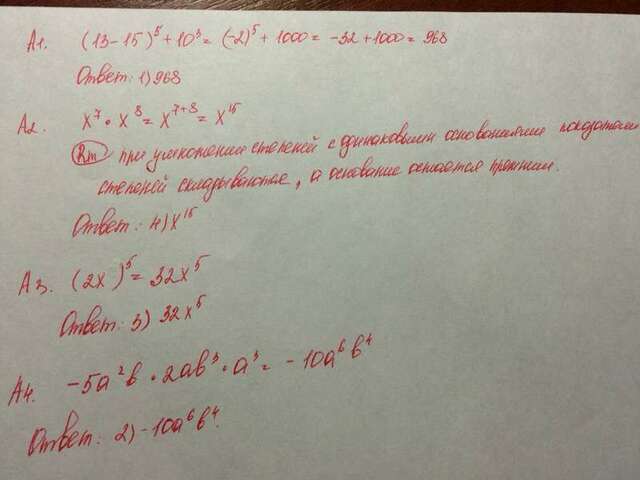 А1. (13-15)⁵ + 10³ = (-2)⁵ + 1000 = -32 + 1000 = 968
Ответ: 1) 968
А2. x⁷ · x⁸ = x⁷⁺⁸ = x¹⁵
при умножении степеней с одинаковыми основаниями показатели
степеней складываются, а основание остается прежним.
Ответ: 4) x¹⁵
А3. (2x)⁵ = 32x⁵
Ответ: 3) 32x⁵
А4. -5a²b · 2ab³ · a³ = -10a⁶b⁴
Ответ: 2) -10a⁶b⁴.